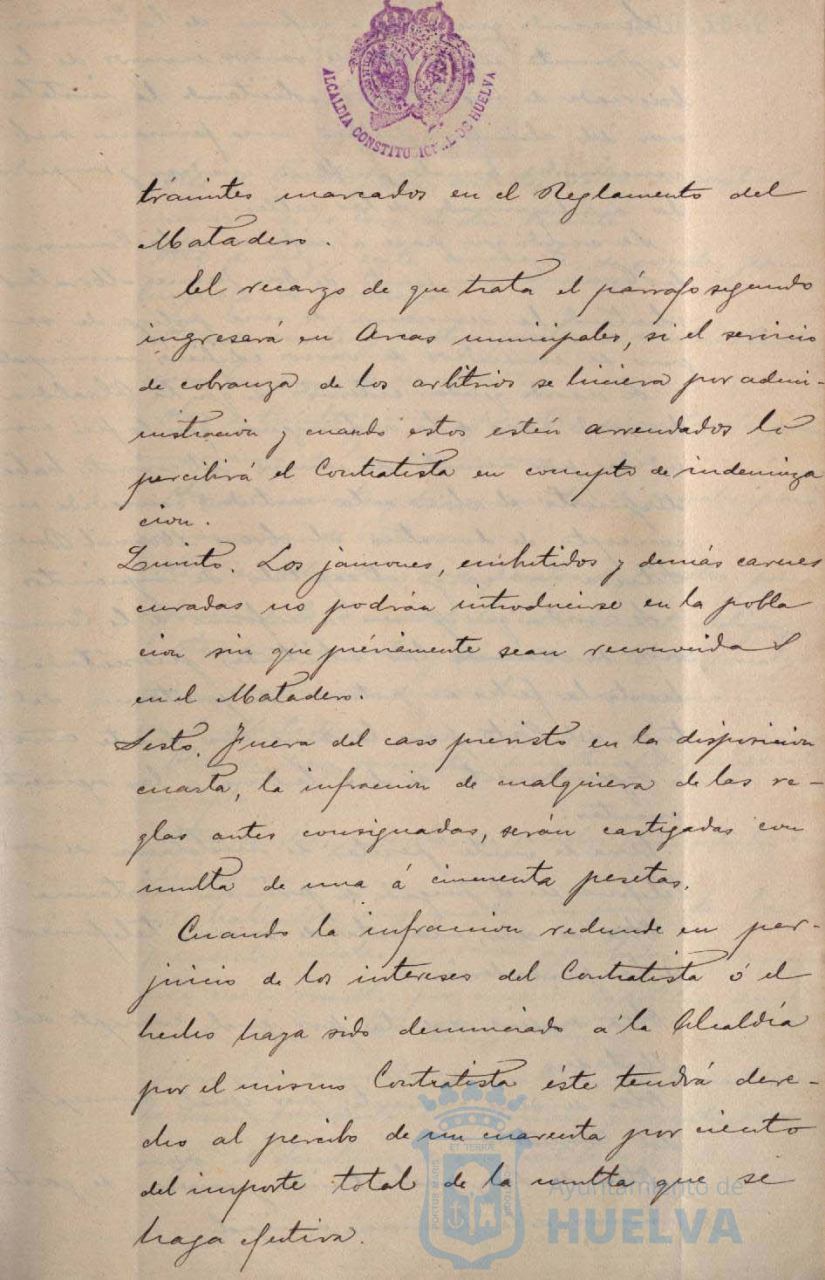 ALCALDIA CONSTITUCIONAL DE HUELVA
trámites marcados en el Reglamento del
Matadero.
El recargo de que trata el párrafo segundo
ingresará en Arcas municipales, si el servicio
de cobranza de los arbitrios se hiciera por admi-
nistracion y cuando estos estén arrendados lo
percibirá el Contratista en concepto de indemniza
cion.
Quinto. Los jamones, embutidos y demás carnes
curadas no podrán introducirse en la pobla
cion sin que préviamente sean reconocidas
en el Matadero.
Sesto. Fuera del caso previsto en la disposicion
cuarta, la infraccion de cualquiera de las re-
glas antes consignadas, serán castigadas con
multa de una á cincuenta pesetas.
Cuando la infraccion redunde en per-
juicio de los intereses del Contratista ó el
hecho haya sido denunciado á la Alcaldía
por el mismo Contratista éste tendrá dere-
cho al percibo de un cuarenta por ciento
del importe total de la multa que se
haga efectiva.
PORTUS MARIS ET TERRÆ CUSTODIA
Ayuntamiento de
HUELVA